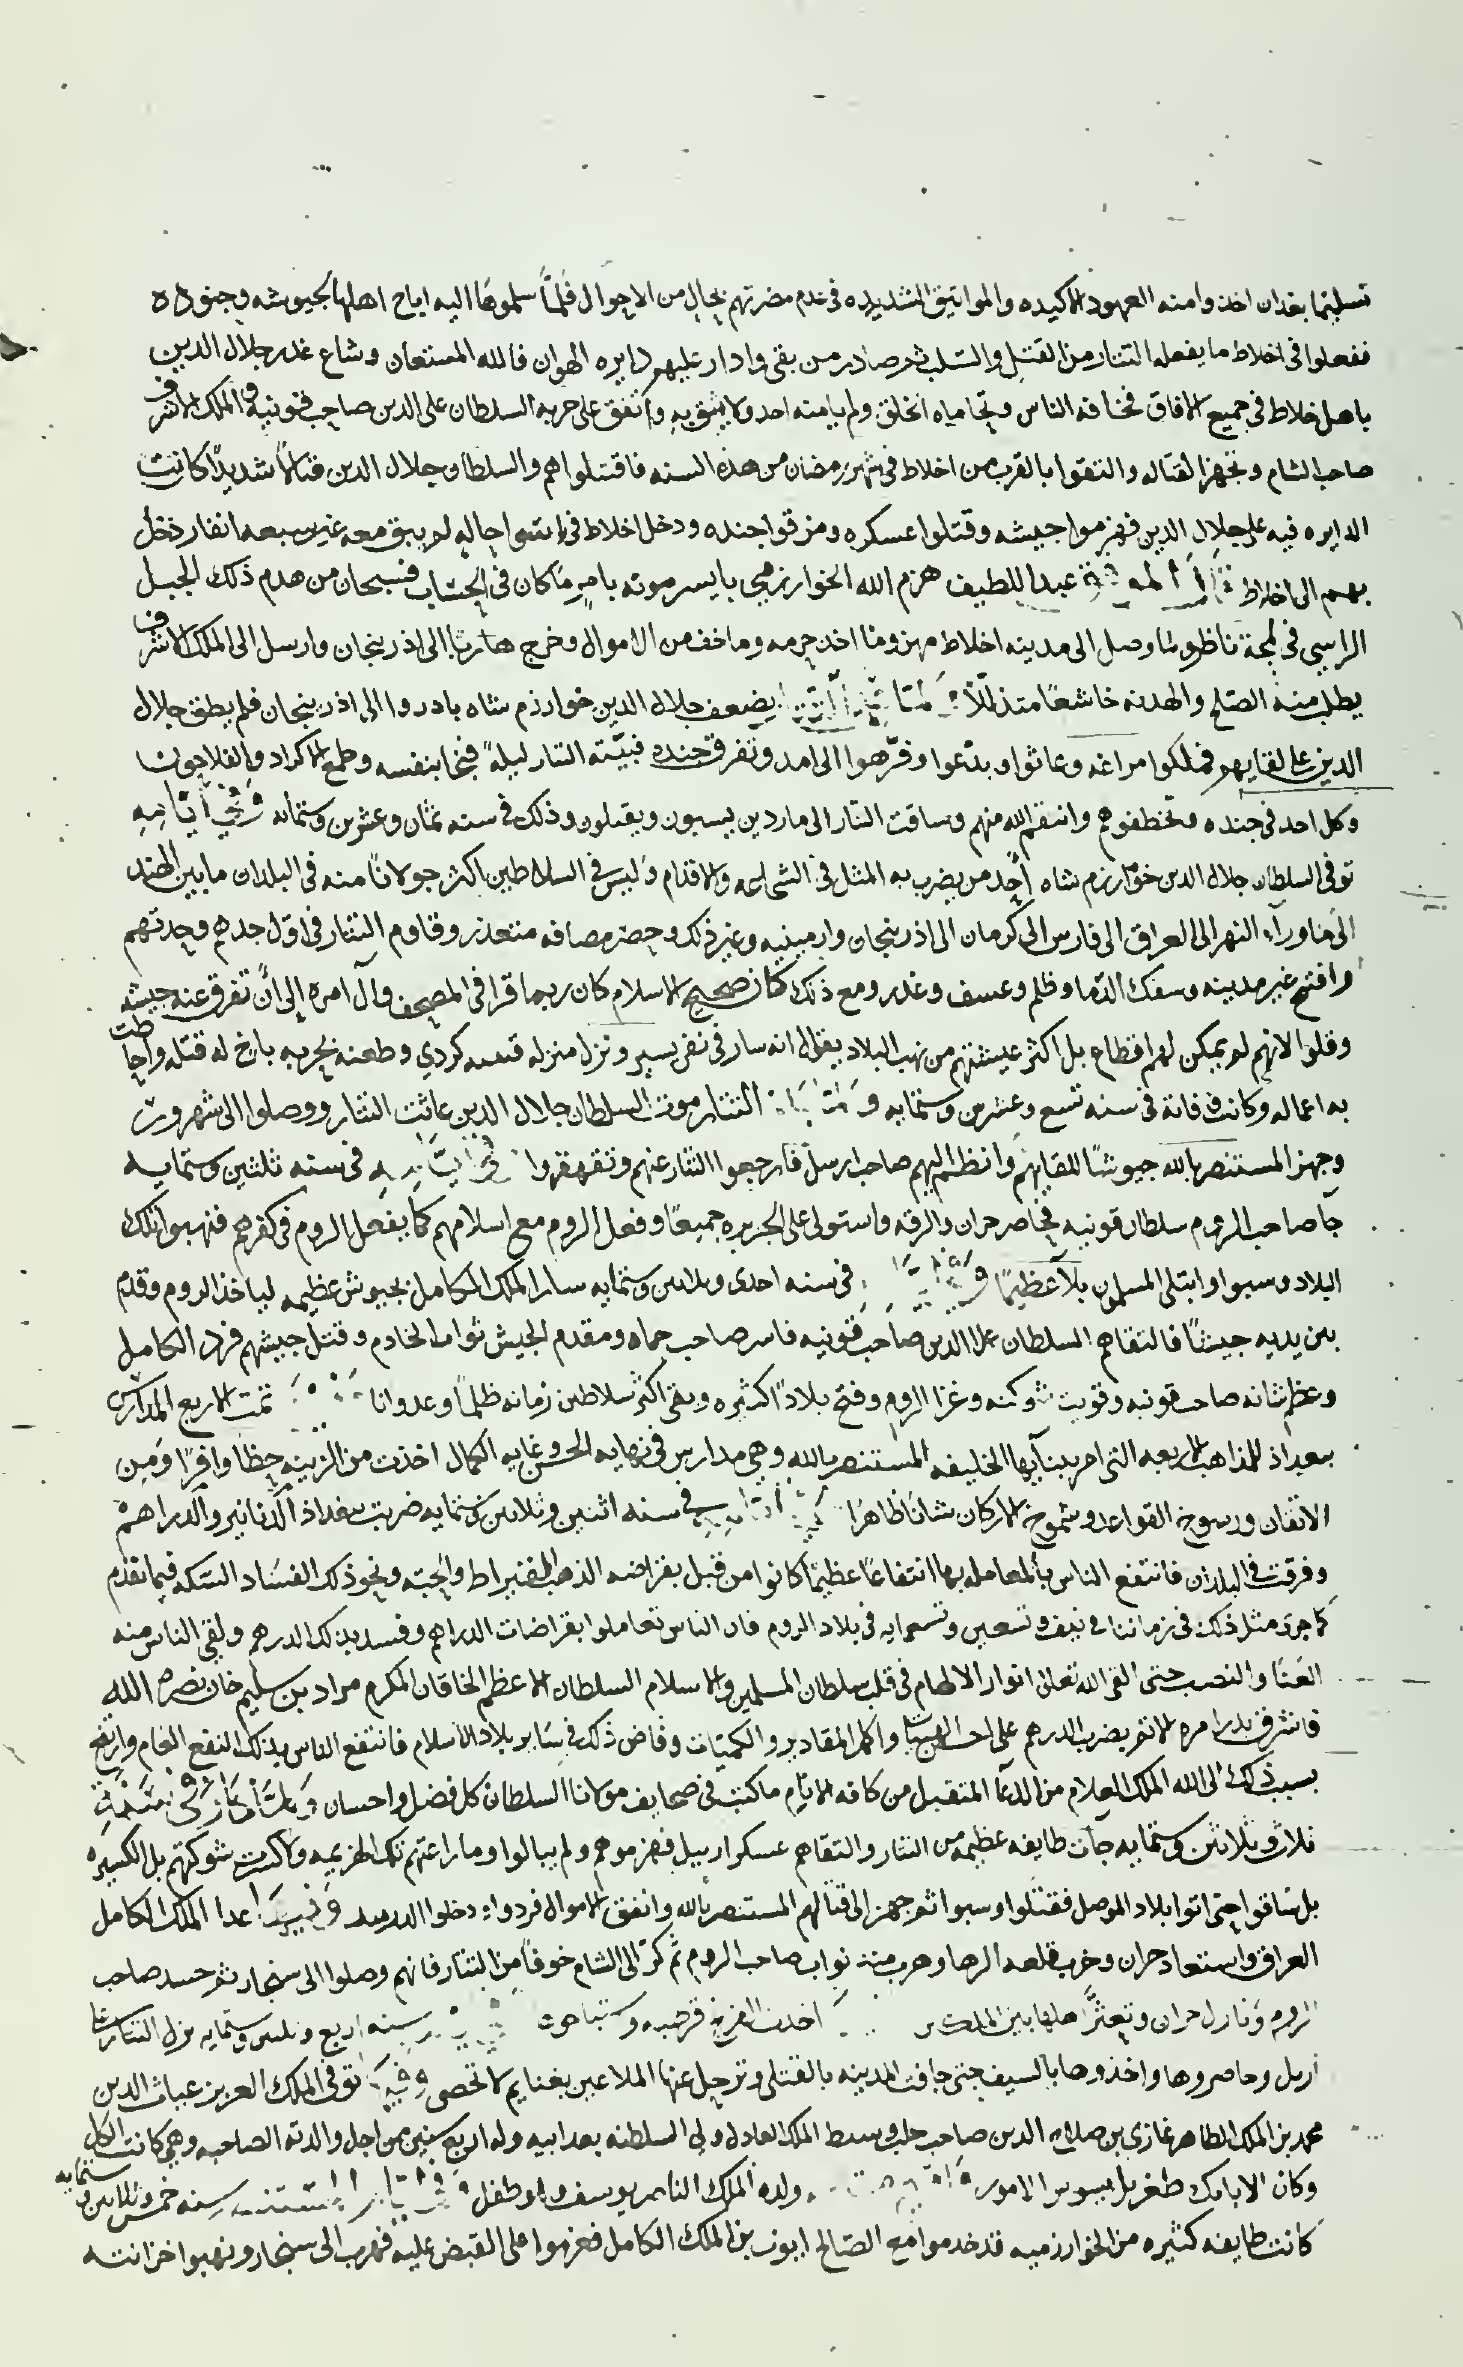 تسليمها بعد ان اخذوا منه العهود الاكيده والمواثيق الشديده في عدم مضرتهم بحال من الاحوال فلما سلموها اليه اباح اهلها لجيوشه وجنوده
ففعلوا في اخلاط ما يفعله التتار من القتل والسلب ثم صادر من بقي وادار عليهم دايره الهوان فالله المستعان وشاع غدر جلال الدين
باهل خلاط في جميع الافاق فخافه الناس وتحاماه الخلق ولم يامنه احد ولا يثق به واتفق على حربه السلطان علي الدين صاحب قونيه والملك الاشرف
صاحب الشام وتجهزا لقتاله والتقوا بالقرب من اخلاط في شهر رمضان من هذه السنه فاقتتلوا هم والسلطان جلال الدين قتالا شديدا كانت
الدايره فيه على جلال الدين فهزموا جيشه وقتلوا عسكره ومزقوا جنده ودخل اخلاط في اسوا حاله لم يبق معه غير سبعه انفار دخل
بهم الى اخلاط قال الموفق عبد اللطيف هزم الله الخوارزمي بايسر مونه بامر ما كان في الحساب فسبحان من هدم ذلك الجبل
الراسي في لمحة ناظر ولما وصل الى مدينه اخلاط مهزوما اخذ حرمه وما خف من الاموال وخرج هاربا الى اذربيجان وارسل الى الملك الاشرف
يطلب منه الصلح والهدنه خاشعا متذللا ولما بضعف جلال الدين خوارزم شاه بادروا الى اذربيجان فلم يطق جلال
الدين على لقايهم فملكوا مراغه وعاثوا وبدعوا وفر هو الى امد وتفرق جنده فبيته التتار ليلة فنجا بنفسه وطمع الاكراد والفلاحون
وكل احد في جنده وتخطفوهم وانتقم الله منهم وساقت التتار الى ماردين يسبون ويقتلون وذلك في سنه ثمان وعشرين وستمائه وفي ايامه
توفي السلطان جلال الدين خوارزم شاه احد من يضرب به المثل في الشجاعه والاقدام وليس في السلاطين اكثر جولانا منه في البلدان ما بين الهند
الى ما وراء النهر الى العراق الى فارس الى كرمان الى اذربيجان وارمينيه وغير ذلك وحضر مصافه متعذر وقاوم التتار في اول جدهم وحدتهم
وافتتح غير مدينه وسفك الدما وظلم وعسف وغدر ومع ذلك كان صحيح الاسلام كان ربما قرا في المصحف وآل امره الى ان تفرق عنه جيشه
وقلوا لانهم لم يمكن لهم اقطاع بل اكثر عيشتهم من نهب البلاد يقال انه سار في نفر يسير ونزل منزله كردي وطعنه بحربه باخ له قتله واحاطت
به اعماله وكانت وفاته في سنه تسع وعشرين وستمايه التتار موت السلطان جلال الدين عاثت التتار ووصلوا الى شهرزور
وجهز المستنصر بالله جيوشا للقايهم وانظم اليهم صاحب اربل فارجعوا التتار عنهم وتقهقروا وفي ايامه في سنه ثلثين وستمايه
جا صاحب الروم سلطان قونيه فحاصر حران والرقه واستولى على الجزيره جميعا وفعل الروم مع اسلامهم كما يفعل الروم في كفرهم فنهبوا تلك
البلاد وسبوا وابتلى المسلمون بلآ عظيما في سنه احدى وثلاثين وستمايه سار الملك الكامل بجيوش عظيمه لياخذ الروم وقدم
بين يديه جيشا فالتقاهم السلطان علا الدين صاحب قونيه فاسر صاحب حماه ومقدم الجيش صواب الخادم وقتل جيشهم فرد الكامل
وعظم شانه صاحب قونيه وقويت شوكته وغزا الروم وفتح بلادا كثيره وبقى اكثر سلاطين زمانه ظلما وعدوانا تمت الاربع المدارس
ببغداد للمذاهب الاربعه التي امر ببنآيها الخليفه المستنصر بالله وهي مدارس في نهايه الحسن وغايه الكمال اخذت من الزينه حظا وافرا ومن
الاتقان ورسوخ القواعد وشموخ الاركان شانا ظاهرا في سنه اثنين وثلاثين وستمايه ضربت ببغداد الدنانير والدراهم
وفرقت في البلدان فانتفع الناس بالمعامله بها انتفاعا عظيما كانوا من قبل بقراضه الذهب القيراط والحبه ونحو ذلك الفساد السكه فيما تقدم
كما جرى مثل ذلك في زماننا في نيف وتسعين وتسعمايه في بلاد الروم فان الناس تعاملوا بقراضات الدراهم وفسد بذلك الدرهم ولقي الناس منه
العنا والنصب حتى القى الله تعالى انوار الالهام في قلب سلطان المسلمين والاسلام السلطان الاعظم الخاقان المكرم مراد بن سليم خان نصره الله
فاشرق بدر امره لاتم بضرب الدرهم على احسن الهيئات واكمل المقادير والكميات وفاض ذلك في ساير بلاد الاسلام فانتفع الناس بذلك النفع العام وارتفع
بسبب ذلك الى الله الملك العلام من الدعآ المتقبل من كافه الانام ما كتب في صحايف مولانا السلطان كل فضل واحسان
ثلاث وثلاثين وستمايه جآت طايفه عظيمه من التتار والتقاهم عسكر اربيل فهزموهم ولم يبالوا وما راعتهم تلك الهزيمه ولا كسرت شوكتهم بل الكسيره
بل ساقوا حتى اتوا بلاد الموصل فقتلوا وسبوا ثم جهز الى قتالهم المستنصر بالله وانفق الاموال فردوا ودخلوا الدربند عدا الملك الكامل
العراق واستعاد حران وخرب قلعه الرها وهرب منه نواب صاحب الروم ثم كر الى الشام خوفا من التتار فانهم وصلوا الى سنجار ثم حسد صاحب
الروم ونازل حران وتعثر اهلها بين الملكين اخذت الفرنج قرطبه واستباحوها سنه اربع وثلثين وستمايه نزل التتار على
اربل وحاصروها واخذوها بالسيف حتى جافت المدينه بالقتلى وترحل عنها الملاعين بغنايم لا تحصى وفيها توفي الملك العزيز غياث الدين
محمد بن الملك الظاهر غازي بن صلاح الدين صاحب حلب وسبط الملك العادل ولي السلطنه بعد ابيه وله اربع سنين من اجل والدته الصاحبه وهي كانت الكل
وكان الاتابك طغريل يسوس الامور ولده الملك الناصر يوسف وهو طفل سنه خمس وثلاثين وستمايه
كانت طايفه كثيره من الخوارزميه قد خدموا مع الصالح ايوب بن الملك الكامل فعزموا على القبض عليه فهرب الى سنجار ونهبوا خزانته